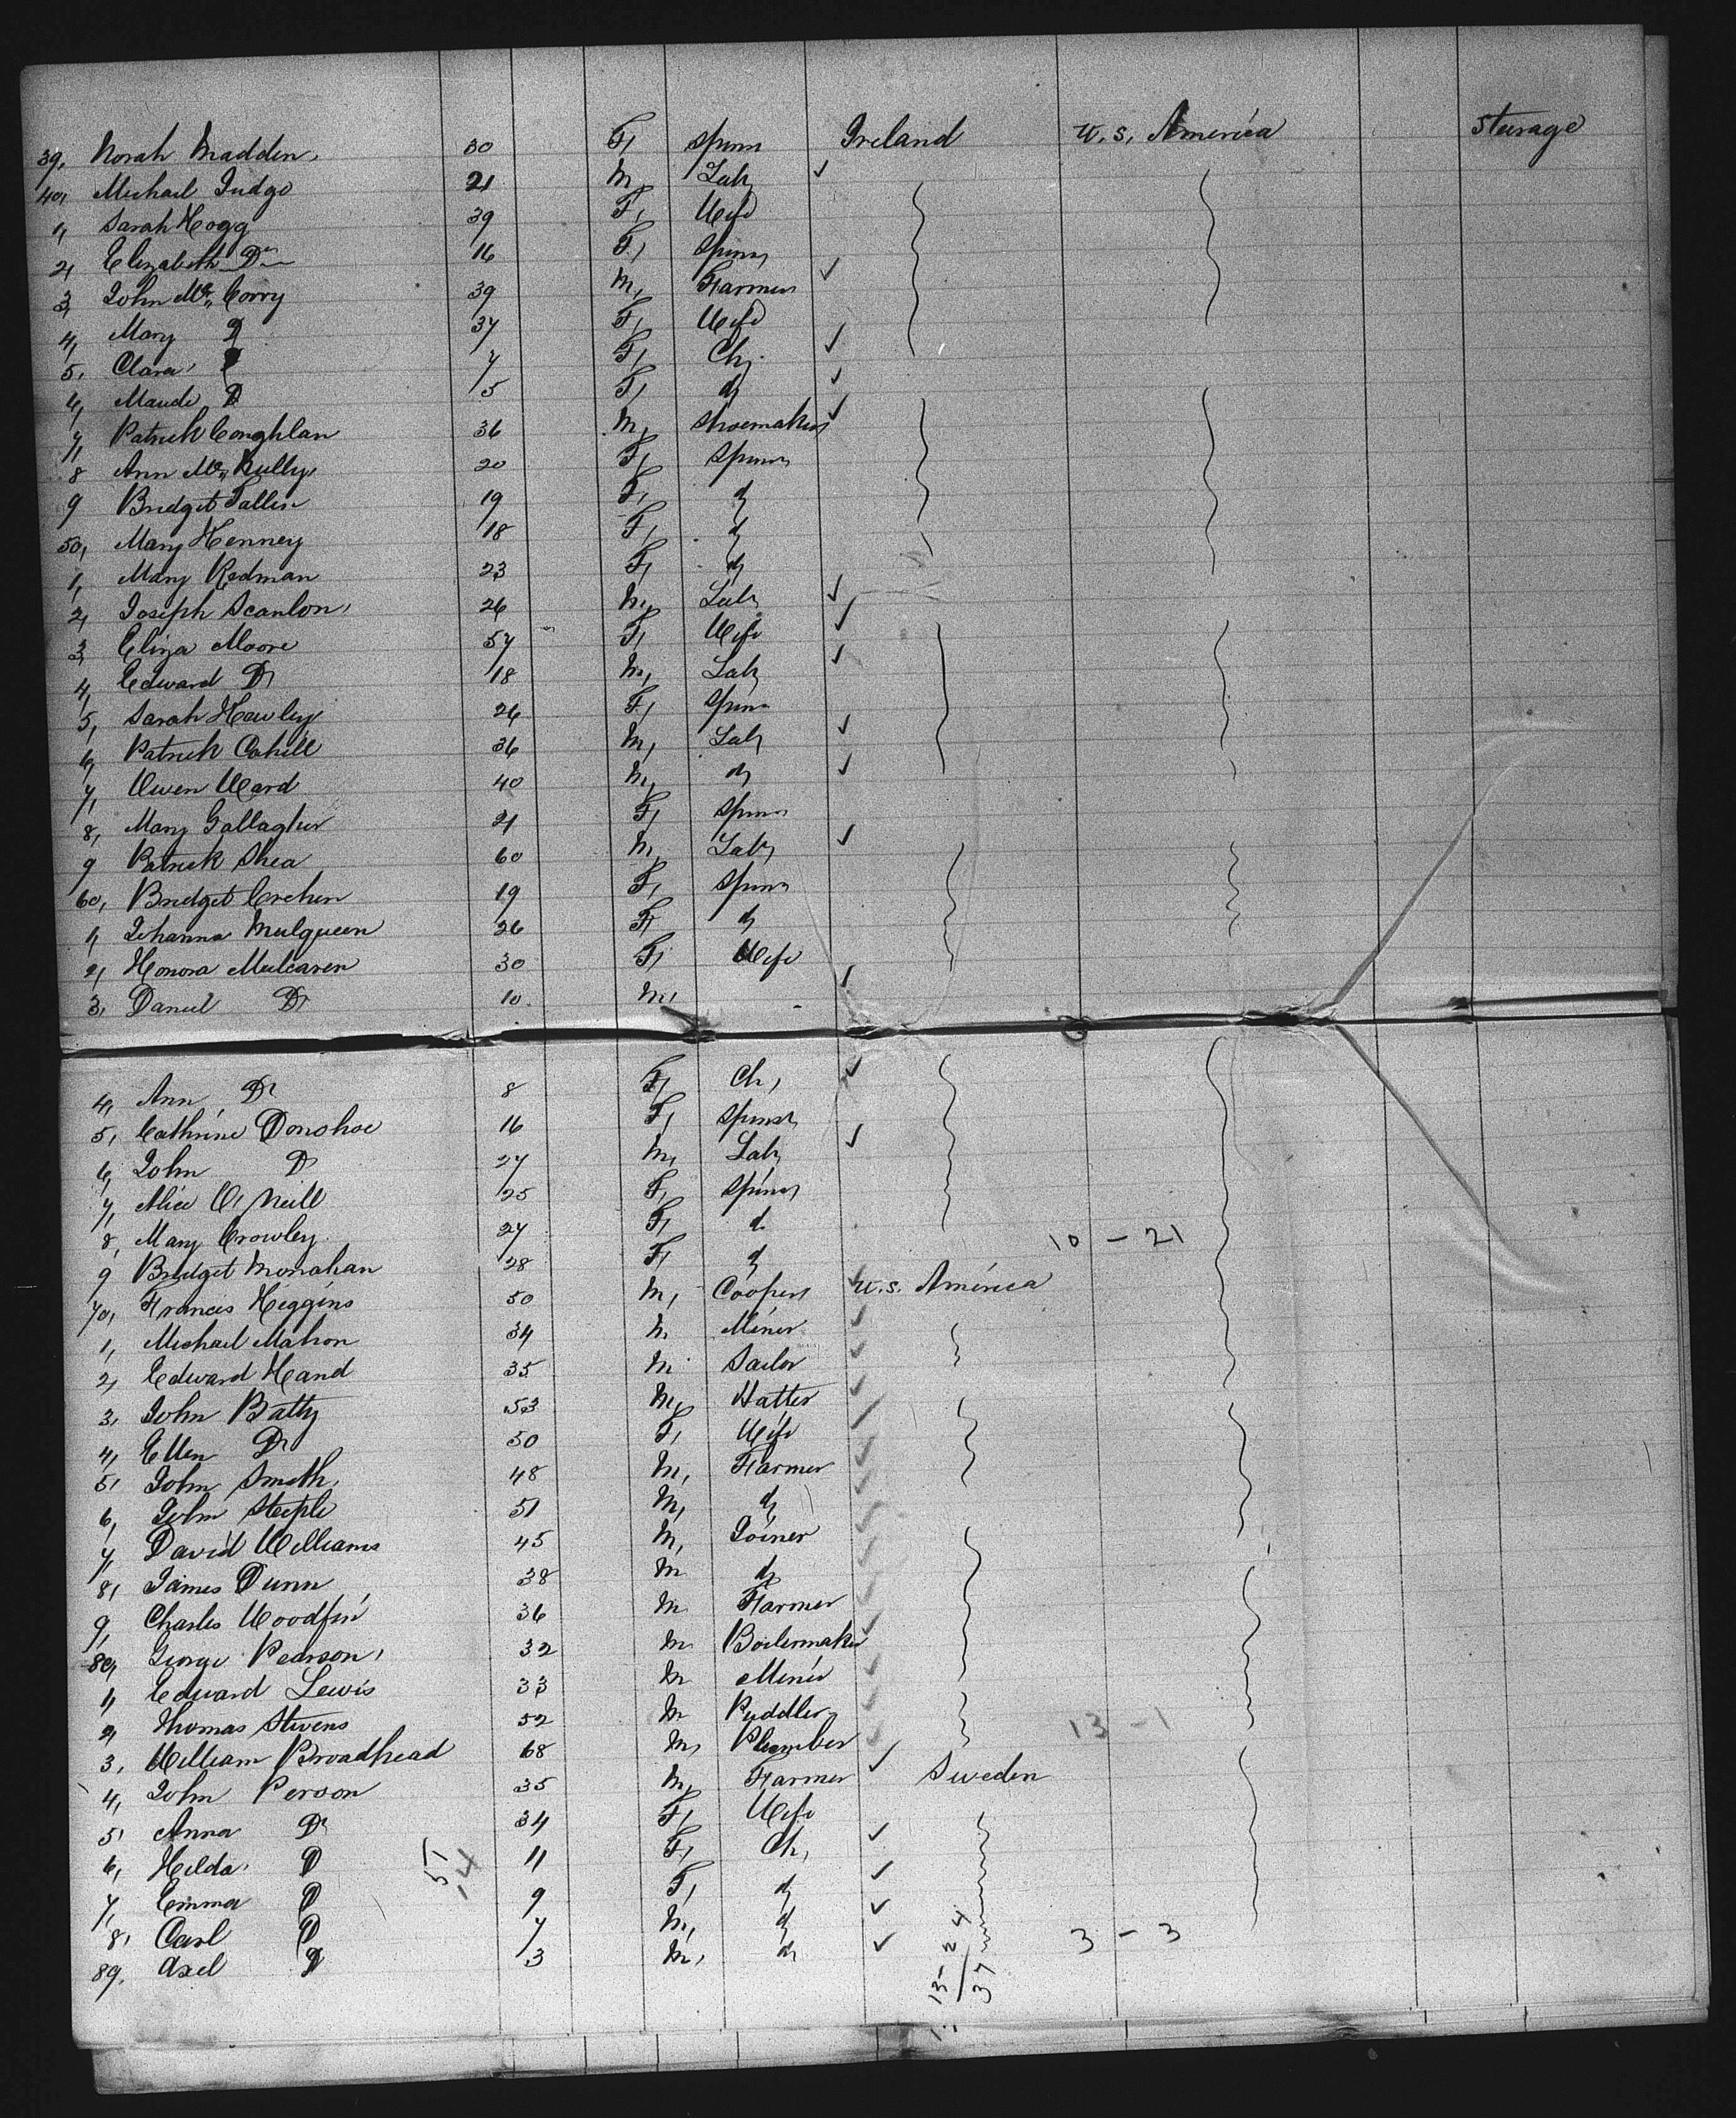 39, Norah Madden, 30 F, Spinr Ireland U.S. America Steerage
40, Michael Judge 21 M, Lab,
1, Sarah Hogg 39 F, Wife
2, Elizabeth Do 16 F, Spinr,
3, John McCorry 39 M, Farmer
4, Mary D 37 F, Wife
5, Clara, D 7 F, Ch,
6, Maude D 5 F, d
7, Patrick Coughlan 36 M, Shoemaker
8 Ann McNully, 20 F, Spinr,
9 Bridget Fallin 19 F, d
50, Mary Henney 18 F, d
1, Mary Redman 23 F, d
2, Joseph Scanlon, 26 M, Lab,
3, Eliza Moore 57 F, Wife
4, Edward D, 18 M, Lab,
5, Sarah Hawley 26 F, Spinr
6, Patrick Cahill 36 M, Lab,
7, Owen Ward 40 M, d
8, Mary Gallagher 21 F, Spinr
9 Patrick Shea 60 M, Lab,
60, Bridget Crehen 19 F, Spinr
1, Johanna Mulqueen 26 F, d
2, Honora Mulcaren 30 F, Wife
3, Daniel D, 10. M,
4, Ann D, 8 F, Ch,
5, Cathrine Donohoe 16 F, Spinst,
6, John D 27 M, Lab,
7, Alice O'Neill 25 F, Spinr,
8, Mary Crowley 27 F, d. 10 - 21
9 Bridget Monahan 28 F, d
70, Francis Higgins 50 M, Cooper U.S. America
1, Michael Mahon 34 M. Miner
2, Edward Hand 35 M. Sailor
3, John Batty 53 M, Hatter
4, Ellen D, 50 F, Wife
5, John Smith, 48 M, Farmer
6, John Steeple 51 M, d
7, David Williams 45 M, Joiner
8, James Dunn 38 M d
9, Charles Woodfin 36 M Farmer
80, George Pearson, 32 M Boilermaker
1, Edward Lewis 33 M Miner
2, Thomas Stevens 52 M Puddler 13 - 1
3, William Broadhead 68 M, Plumber
4, John Person 35 M, Farmer Sweden
5, Anna D 34 F, Wife
6, Hilda, D 11 F, Ch,
7, Emma D 9 F, d
8, Carl D 7 M, d
89, Axel D 3 M, d 3 - 3
51
14
13-24
37